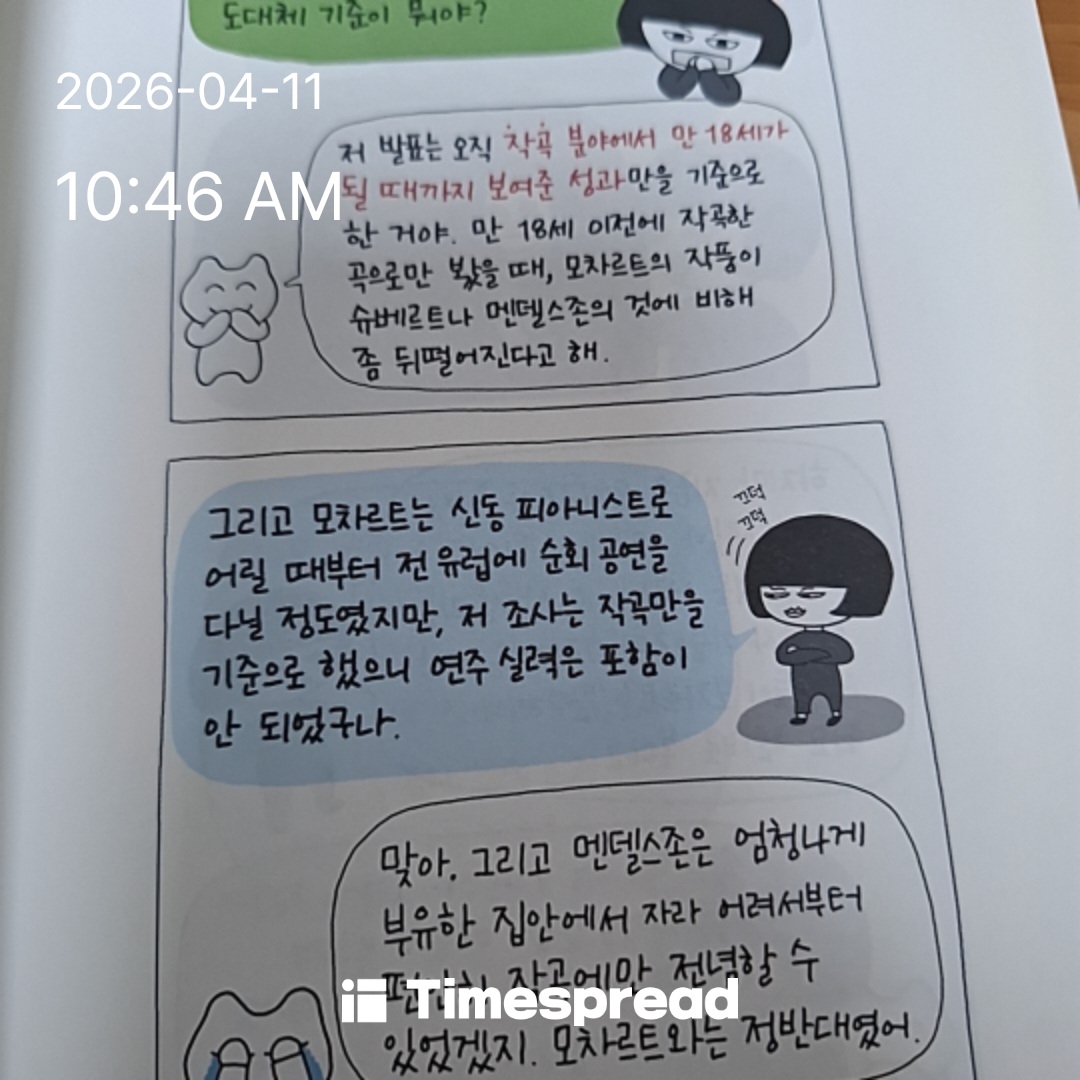 도대체 기준이 뭐야?
2026-04-11
10:46 AM
저 발표는 오직 작곡 분야에서 만 18세가
될 때까지 보여준 성과만을 기준으로
한 거야. 만 18세 이전에 작곡한
곡으로만 봤을 때, 모차르트의 작풍이
슈베르트나 멘델스존의 것에 비해
좀 뒤떨어진다고 해.
그리고 모차르트는 신동 피아니스트로
어릴 때부터 전 유럽에 순회 공연을
다닐 정도였지만, 저 조사는 작곡만을
기준으로 했으니 연주 실력은 포함이
안 되었구나.
끄덕
끄덕
맞아. 그리고 멘델스존은 엄청나게
부유한 집안에서 자라 어려서부터
작곡에만 전념할 수
있었겠지. 모차르트와는 정반대였어.
Timespread